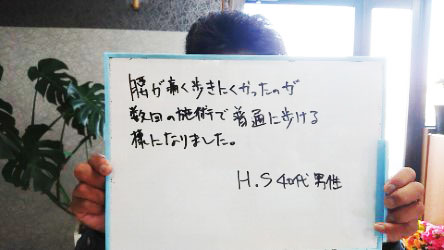 腰が痛く歩きにくかったのが
数回の施術で普通に歩ける
様になりました。
H.S 40代 男性